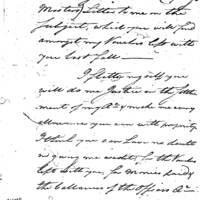 Morton's Letter to me on the
subject, which you will find
amongst my Vouchers left with
you last fall —
I flatter myself you
will do me Justice in the settle
ment of my Acts & make me every
allowance you can with propriety
I think you can have no doubt
in giving me credit, for the Vouchers
left with you, for monies paid &
the ballances of the Officers Acts